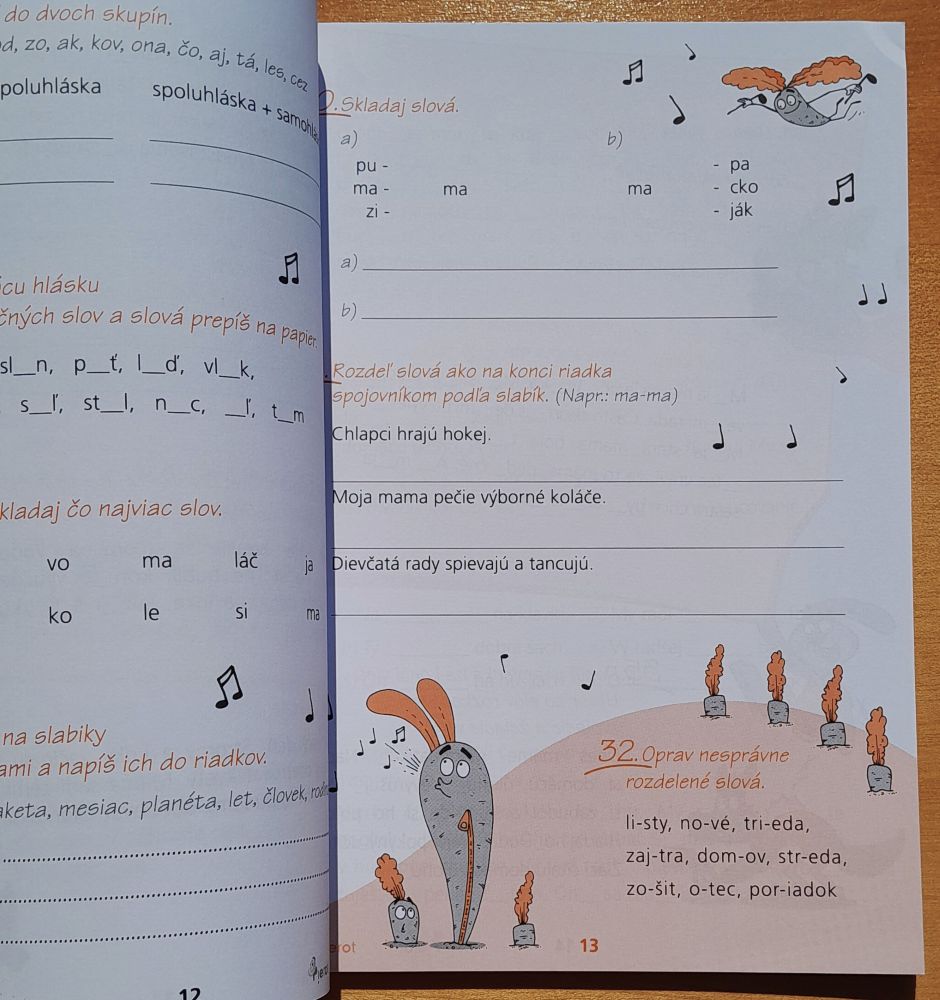 do dvoch skupín.
zo, ak, kov, ona, čo, aj, tá, les, cez
spoluhláska + samohlá
cu hlásku
čných slov a slová prepíš na papier.
sl__n, p__ť, l__ď, vl__k,
s__ľ, st__l, n__c, __ľ, t__m
kladaj čo najviac slov.
vo ma láč ja
ko le si ma
na slabiky
ami a napíš ich do riadkov.
aketa, mesiac, planéta, let, človek,
12
Skladaj slová.
a) b)
pu - - pa
ma - ma ma - cko
zi - - ják
a)
b)
Rozdeľ slová ako na konci riadka
spojovníkom podľa slabík. (Napr.: ma-ma)
Chlapci hrajú hokej.
Moja mama pečie výborné koláče.
Dievčatá rady spievajú a tancujú.
32. Oprav nesprávne
rozdelené slová.
li-sty, no-vé, tri-eda,
zaj-tra, dom-ov, str-eda,
zo-šit, o-tec, por-iadok
13